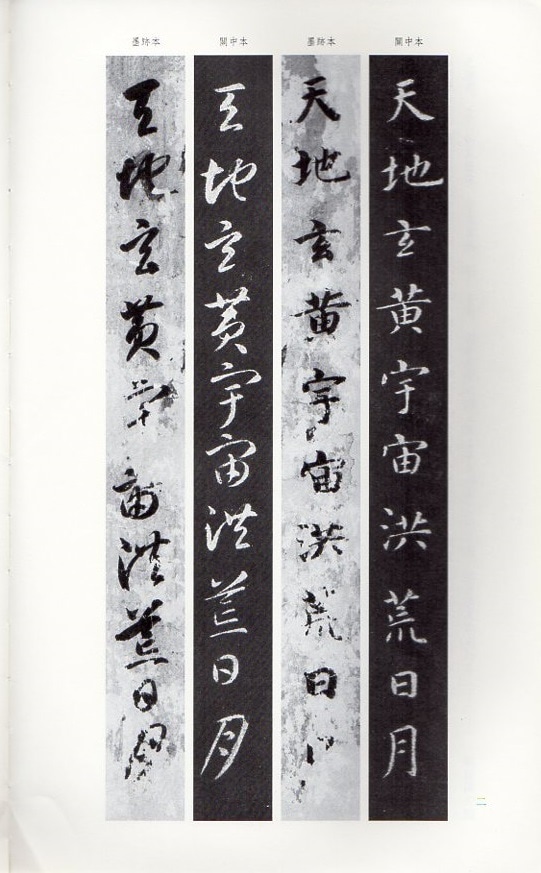 關中本
墨跡本
關中本
墨跡本
天地玄黃宇宙洪荒日月
天地玄黃宇宙洪荒日月
天地玄黃宇宙洪荒日月
天地玄黃宇宙洪荒日月
二